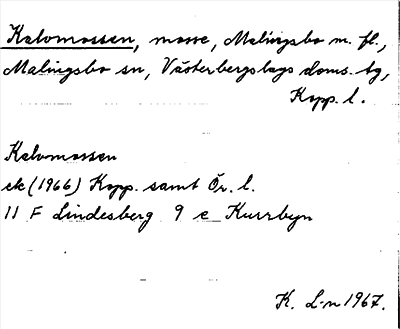 Kalvmossen, mosse, Malingsbo m. fl.,
Malingsbo sn, Västerbergslags doms. tg,
Kopp. l.
Kalvmossen
ek (1966) Kopp. samt Ör. l.
11 F Lindesberg 9 e Kurrbyn
K. L-n 1967.